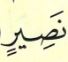 نَصِيرٍ